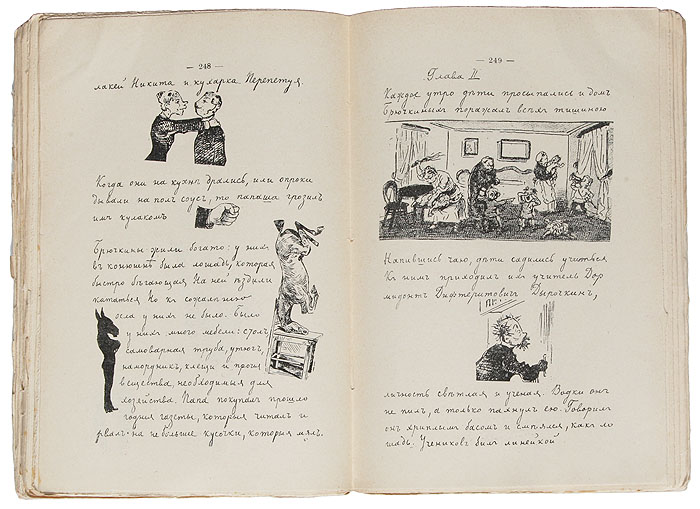 — 248 —
лакей Никита и кухарка Перепетуя.
Когда они на кухнѣ дрались, или опроки
дывали на полъ соусъ, то папаша грозилъ
имъ кулакомъ
Брючкины жили богато: у нихъ
въ конюшнѣ была лошадь, которая
быстро бѣгающая На ней ѣздили
кататься Но къ сожалѣнію
осла у нихъ не было. Было
у нихъ много мебели: столъ
самоварная труба, утюгъ,
намордникъ, клещи и прочія
вещества, необходимыя для
хозяйства. Папа покупалъ прошло
годнія газеты, которыя читалъ и
рвалъ на небольшіе кусочки, которыя мялъ.
— 249 —
Глава II
Каждое утро дѣти просыпались и домъ
Брючкиныхъ поражалъ всѣхъ тишиною
Напившись чаю, дѣти садились учиться
Къ нимъ приходилъ ихъ учитель Дор
мидонтъ Дифтеритовичъ Дырочкинъ,
личность свѣтлая и ученая. Водки онъ
не пилъ, а только пахнулъ ею. Говорилъ
онъ хриплымъ басомъ и смѣялся, какъ ло
шадь. Учениковъ билъ линейкой